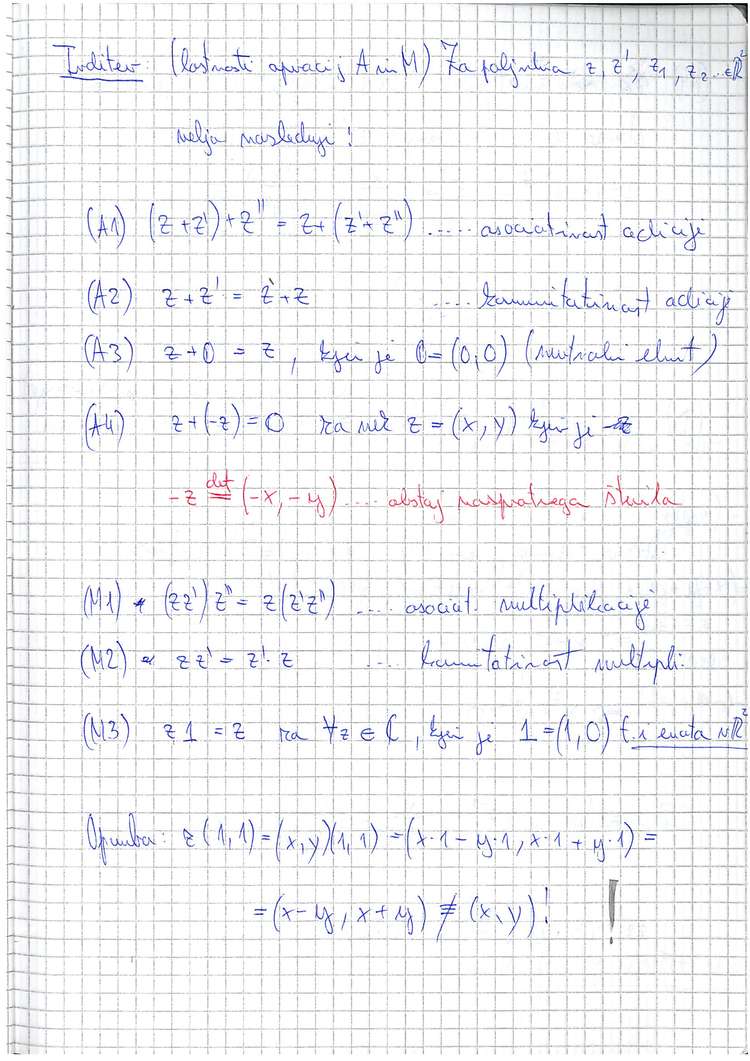 Trditev: (lastnosti operacij A in M) Za poljubna z, z', z₁, z₂... ∈ ℝ²
velja naslednje:
(A1) (z + z') + z'' = z + (z' + z'') ..... asociativnost adicije
(A2) z + z' = z' + z .... komutativnost adicije
(A3) z + 0 = z, kjer je 0 = (0,0) (neutralni elmt)
(A4) z + (-z) = 0 za vsk z = (x, y) kjer je -z
-z def= (-x, -y) .... obstoj nasprotnega števila
(M1) (zz')z'' = z(z'z'') .... asociat. multiplikacije
(M2) zz' = z'·z .... komutativnost multipli.
(M3) z1 = z za ∀z ∈ ℂ, kjer je 1 = (1,0) t.i enota v ℝ²
Opomba: z(1,1) = (x,y)(1,1) = (x·1 - y·1, x·1 + y·1) =
= (x-y, x+y) ≢ (x,y)! !